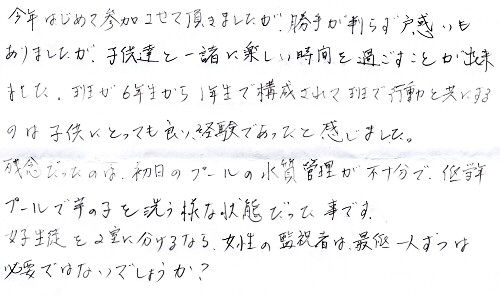 今年はじめて参加させて頂きましたが、勝手が判らず戸惑いも
ありましたが、子供達と一諸に楽しい時間を過ごすことが出来
ました。班が6年生から1年生で構成されて班で行動を共にする
のは子供にとっても良い経験であったと感じました。
残念だったのは、初日のプールの水質管理が不十分で、低学年
プールで芋の子を洗う様な状態だった事です。
女子生徒を2室に分けるなら、女性の監視者は、最低一人ずつは
必要ではないでしょうか?